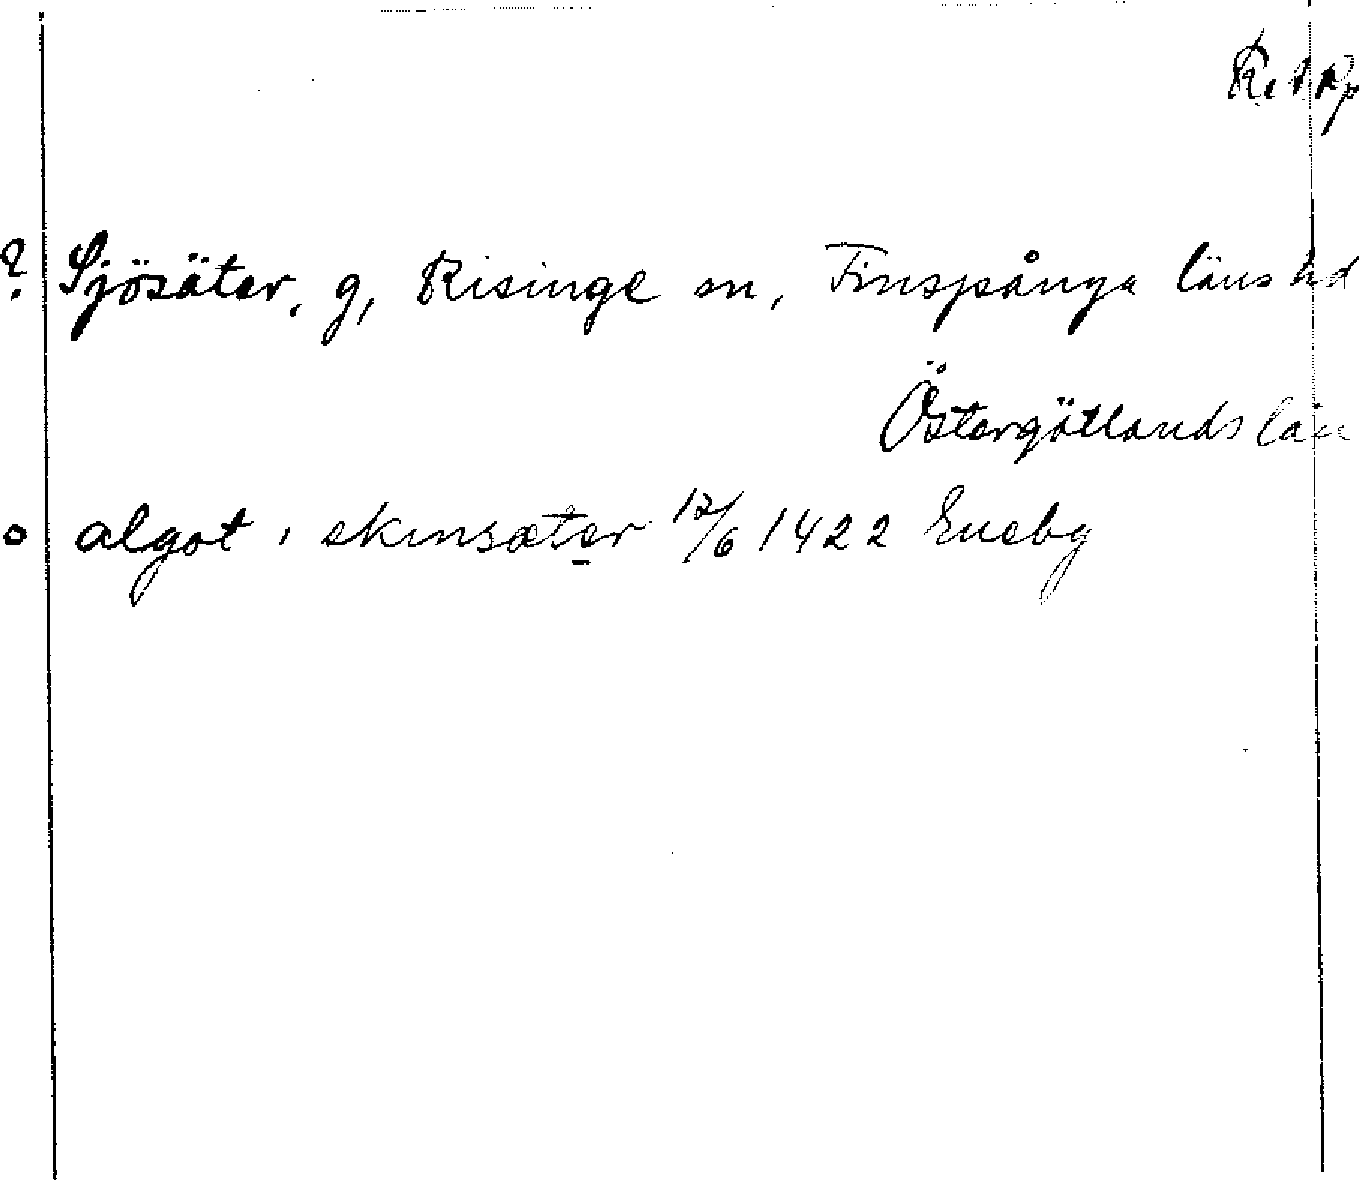 ? Sjösäter, g, Risinge sn, Finspånga läns hd
Östergötlands län
o algot i skinsæter 12/6 1422 Eneby